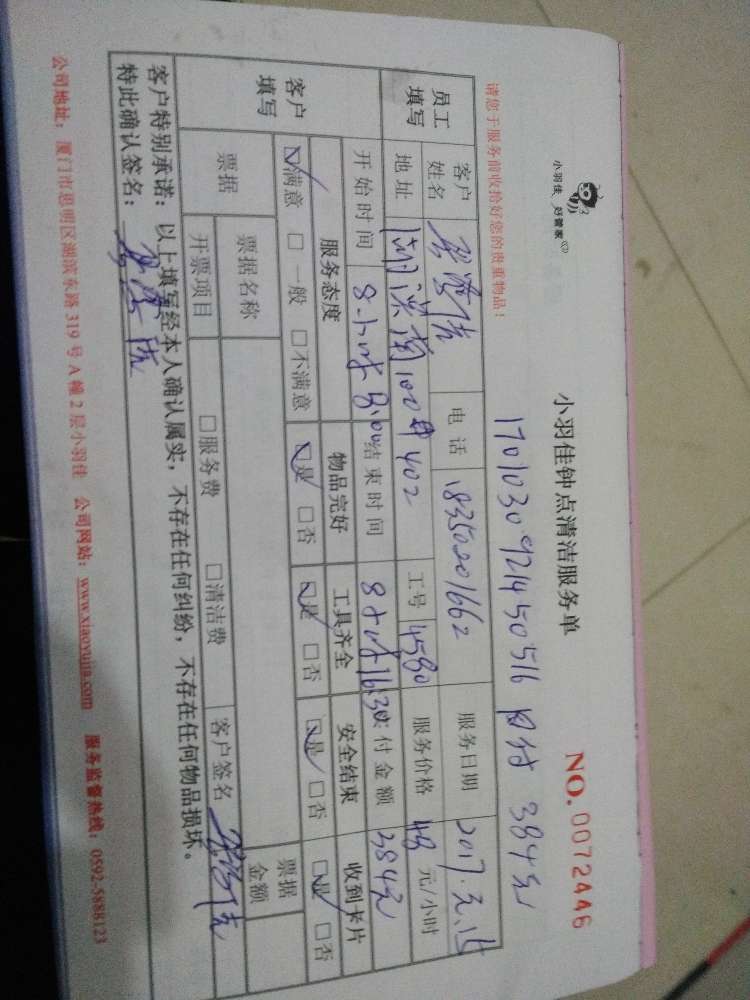 小羽佳 好管家
小羽佳钟点清洁服务单
NO. 0072446
请您于服务前收拾好您的贵重物品!
170103092145051 6 日付 384元
员工填写 客户姓名 电话 18350201662 服务日期 2017.元.15
地址 湖滨南100号402 工号 4580 服务价格 48 元/小时
开始时间 8小时 8:00 结束时间 8小时 16:30 实付金额 384元
客户填写 服务态度 物品完好 工具齐全 安全结束 收到卡片
☑满意 □一般 □不满意 ☑是 □否 ☑是 □否 ☑是 □否 ☑是 □否
票据 票据名称 票据金额
开票项目 □服务费 □清洁费 客户签名
客户特别承诺: 以上填写经本人确认属实,不存在任何纠纷,不存在任何物品损坏。
特此确认签名:
公司地址: 厦门市思明区湖滨东路 319 号 A 幢 2 层小羽佳 公司网站: www.xiaoyujia.com 服务监督热线: 0592-5888123